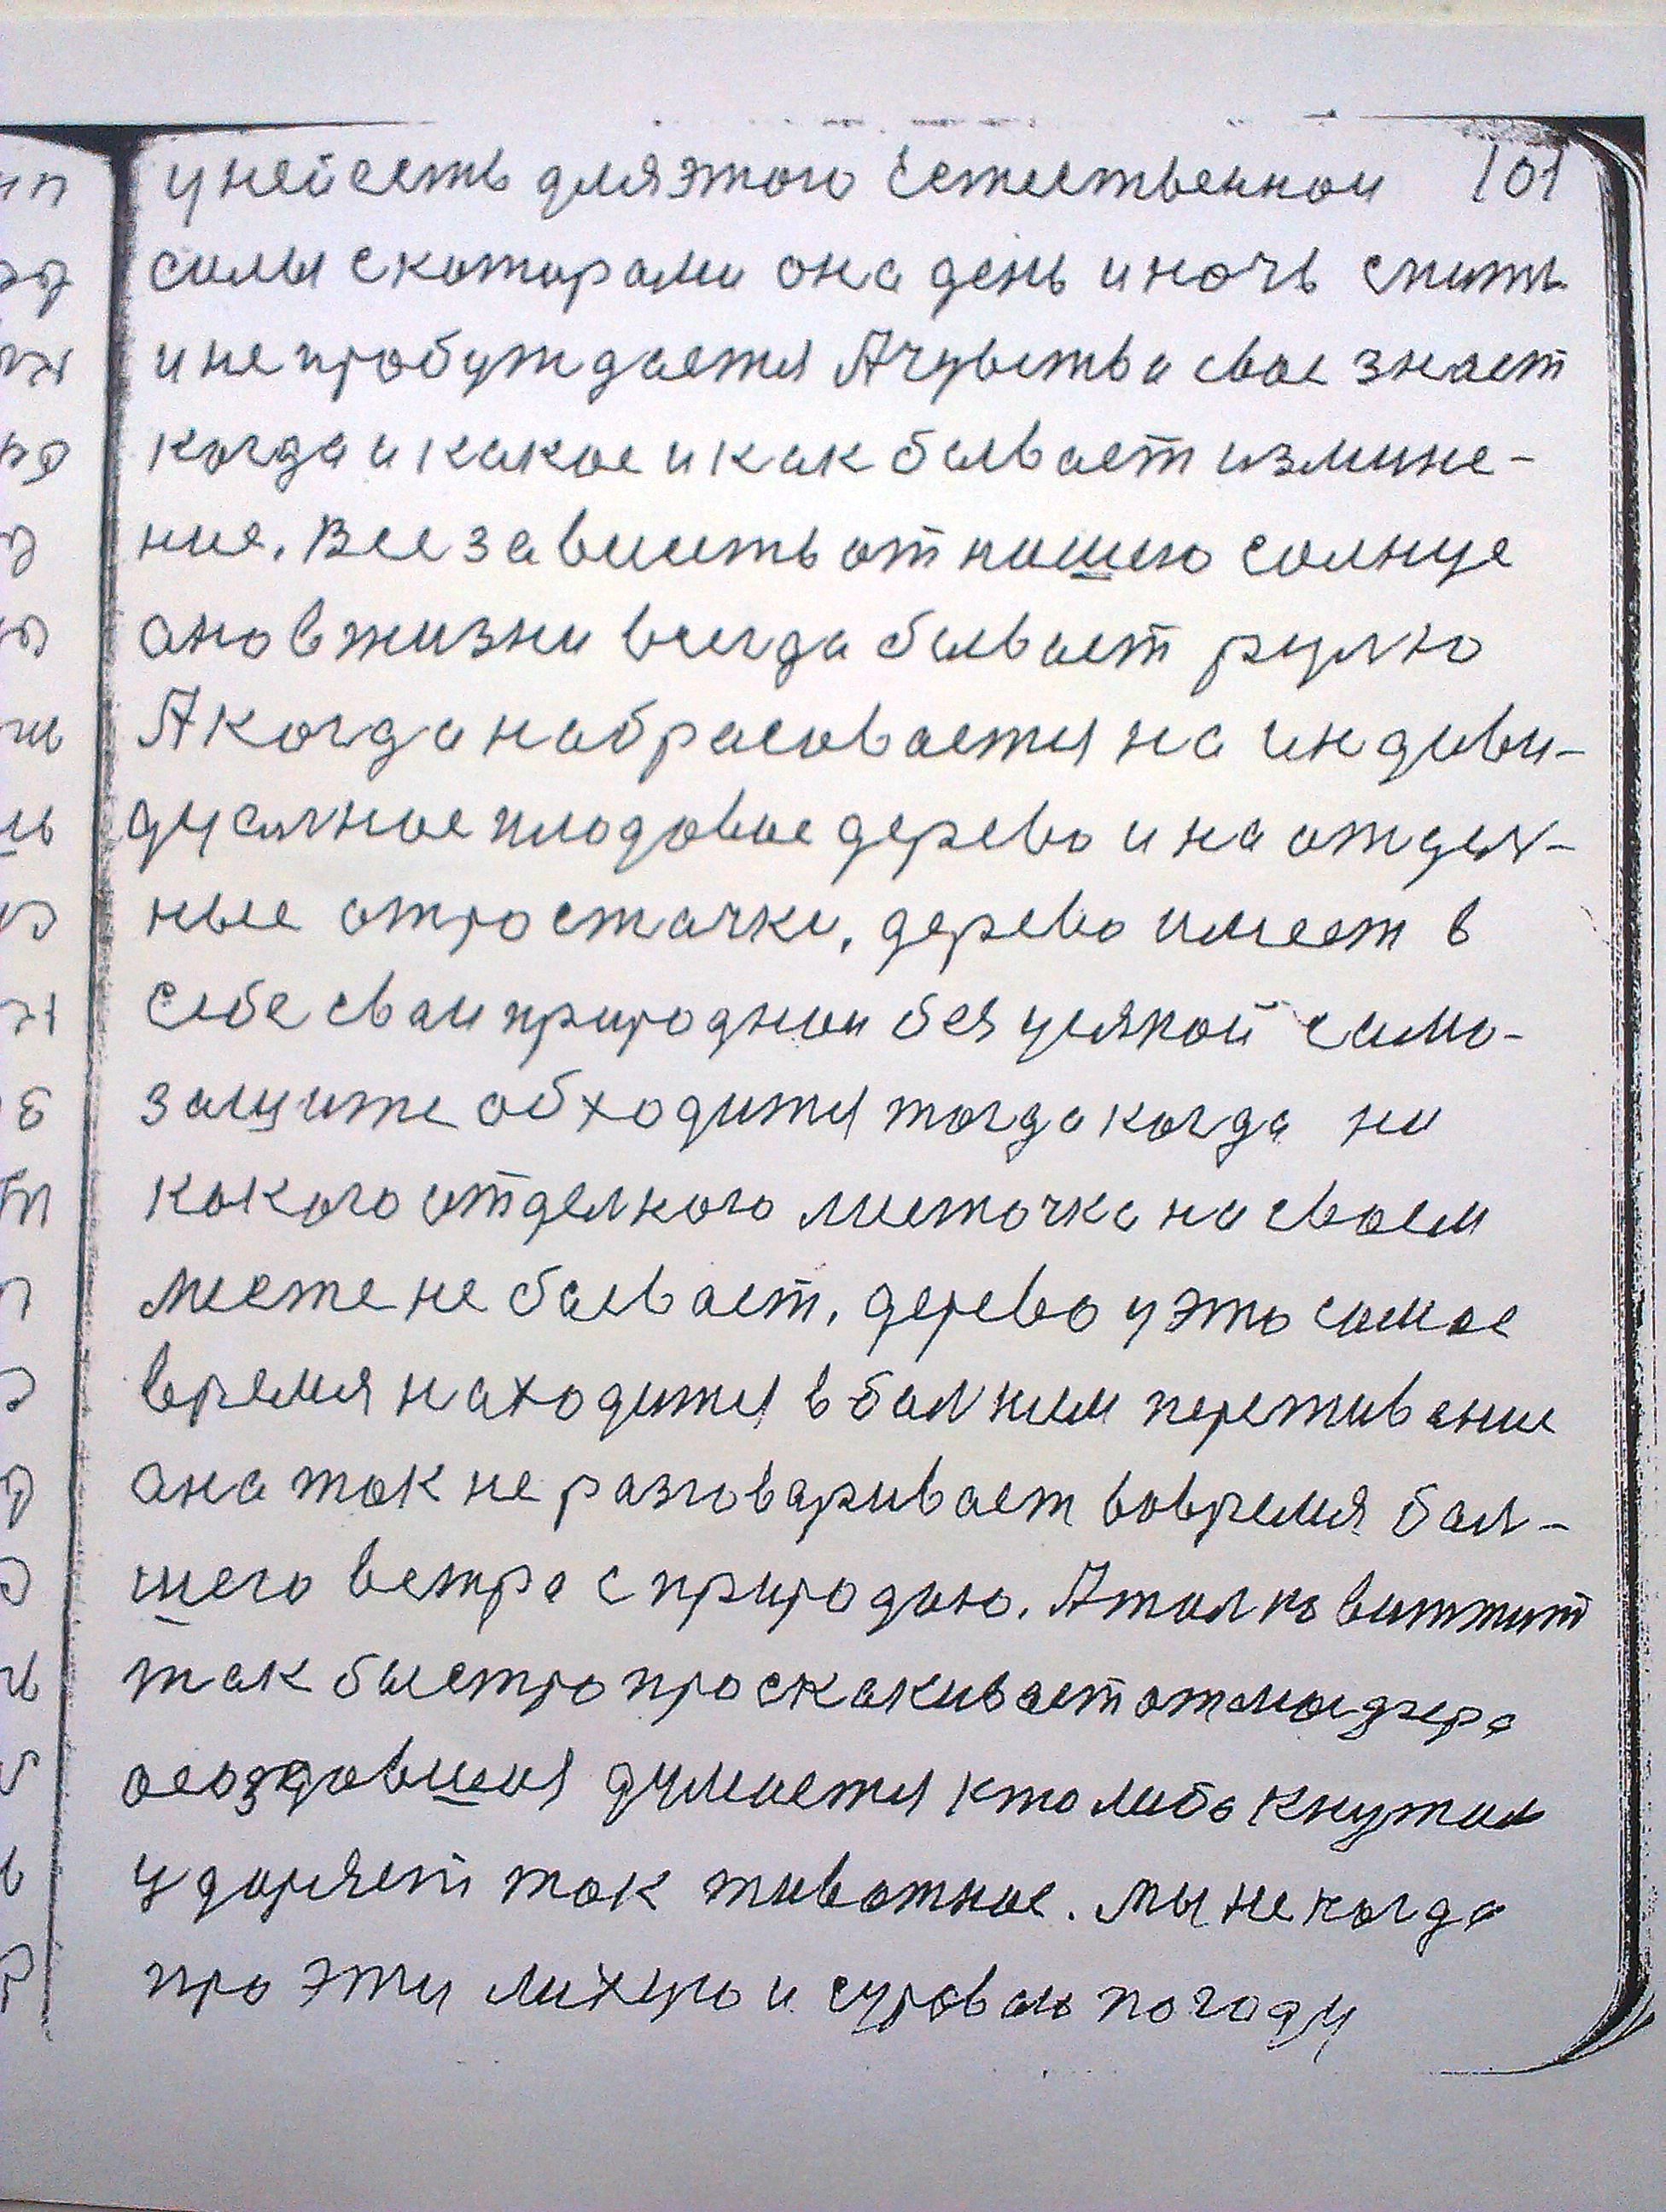 у ней есть для этого естественнои 101
силы с которами она день и ночь спить
и не пробуждается А чувства свае знает
когда и какое и как бывает измине-
ние. Все зависить от нашего солнце
оно в жизни всегда бывает рулю
А когда набрасовается на индиви-
дуалное плодовое дерево и на отдел-
ные отросточки, дерево имеет в
себе сваи природнои без усякой само-
защите обходится тогда когда ни
какого отделного листочка на своем
месте не бывает, дерево у это самое
время находится в балнием переживание
она так не разговаривает вовремя бал-
шего ветра с природою. А толко виттит
так быстро проскакивает от
думается кто либо кнутам
ударяет так животное. мы не когда
про эту лихую и суровою погоду